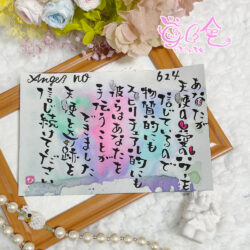 Angel no 624
あなたが
天使の愛の中を
信じているので
物質的にも
スピリチュアル的にも
彼らはあなたを
手伝うことが
できました
天使と奇跡を
信じ続けてください